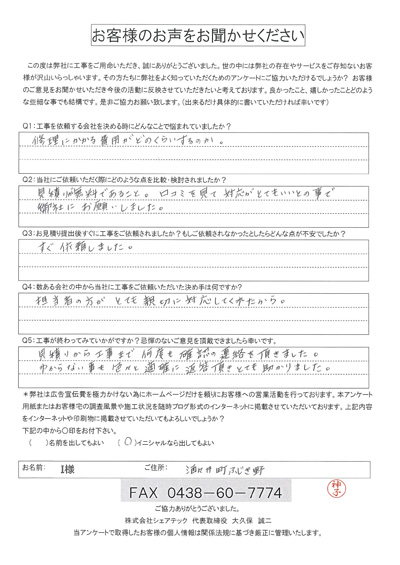 お客様のお声をお聞かせください
この度は弊社に工事をご用命いただき、誠にありがとうございました。世の中には弊社の存在やサービスをご存知ないお客
様が沢山いらっしゃいます。その方たちに弊社をよく知っていただくためのアンケートにご協力いただけるでしょうか? お客様
のご意見をお聞かせいただき今後の活動に反映させていただきたいと考えております。良かったこと、嬉しかったことどのよう
な些細な事でも結構です。是非ご協力お願い致します。(出来るだけ具体的に書いていただければ幸いです)
Q1:工事を依頼する会社を決める時にどんなことで悩まれていましたか?
修理にかかる費用がどのくらいするのか。
Q2:当社にご依頼いただく際にどのような点を比較・検討されましたか?
見積りが無料であること。口コミを見て対応がとてもいいとの事で
御社にお願いしました。
Q3:お見積り提出後すぐに工事をご依頼されましたか?もしご依頼されなかったとしたらどんな点が不安でしたか?
すぐ依頼しました。
Q4:数ある会社の中から当社に工事をご依頼いただいた決め手は何ですか?
担当者の方がとても親切に対応してくれたから。
Q5:工事が終わってみていかがですか?忌憚のないご意見を頂戴できましたら幸いです。
見積りから工事まで何度も確認の連絡を頂きました。
わからない事も適確に返答頂きとても助かりました。
*弊社は広告宣伝費を極力かけない為にホームページだけを頼りにお客様への営業活動を行っております。本アンケート
用紙またはお客様宅の調査風景や施工状況を随時ブログ形式のインターネットに掲載させていただいております。上記内容
をインターネットや印刷物に掲載させていただいてもよろしいでしょうか?
下記の中から〇印をお付下さい。
( )名前を出してもよい (〇)イニシャルなら出してもよい
お名前: I様 ご住所:
FAX 0438-60-7774
ご協力ありがとうございました。
株式会社シェアテック 代表取締役 大久保 誠二
当アンケートで取得したお客様の個人情報は関係法規に基づき厳正に管理いたします。